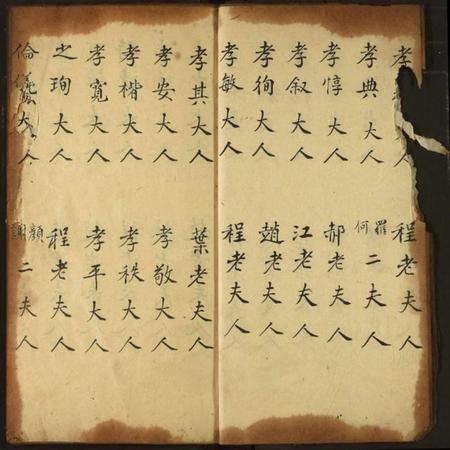 孝 人
程老夫人
孝典大人
羅何二夫人
孝惇大人
郝老夫人
孝叙大人
江老夫人
孝徇大人
趙老夫人
孝敏大人
程老夫人
孝其大人
葉老夫人
孝安大人
孝敬大人
孝楷大人
孝秩大人
孝寬大人
孝平大人
之珣大人
程老夫人
倫儀大人
顏謝二夫人